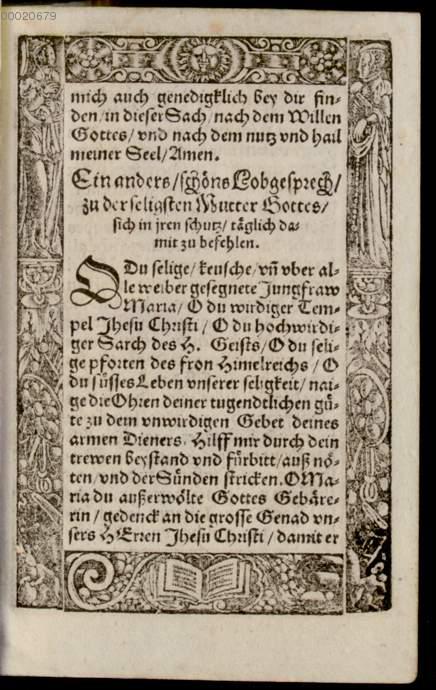 00020679
mich auch genedigklich bey dir fin-
den/in dieser Sach/nach dem Willen
Gottes/vnd nach dem nutz vnd hail
meiner Seel/Amen.
Ein anders/schöns Lobgesprech/
zu der seligsten Mutter Gottes/
sich in jren schutz/täglich da-
mit zu befehlen.
O Du selige/keusche/vn̄ vber al-
le weiber gesegnete Jungfraw
Maria/O du wirdiger Tem-
pel Jhesu Christi/O du hochwirdi-
ger Sarch des H. Geists/O du seli-
ge pforten des fron Himelreichs/O
du süsses Leben vnserer seligkeit/nai-
ge die Ohren deiner tugendtlichen gü-
te zu dem vnwirdigen Gebet deines
armen Dieners. Hilff mir durch dein
trewen beystand vnd fürbitt/auß nö-
ten/vnd der Sünden stricken. O Ma-
ria du außerwölte Gottes Gebäre-
rin/gedenck an die grosse Genad vn-
sers HErren Jhesu Christi/damit er